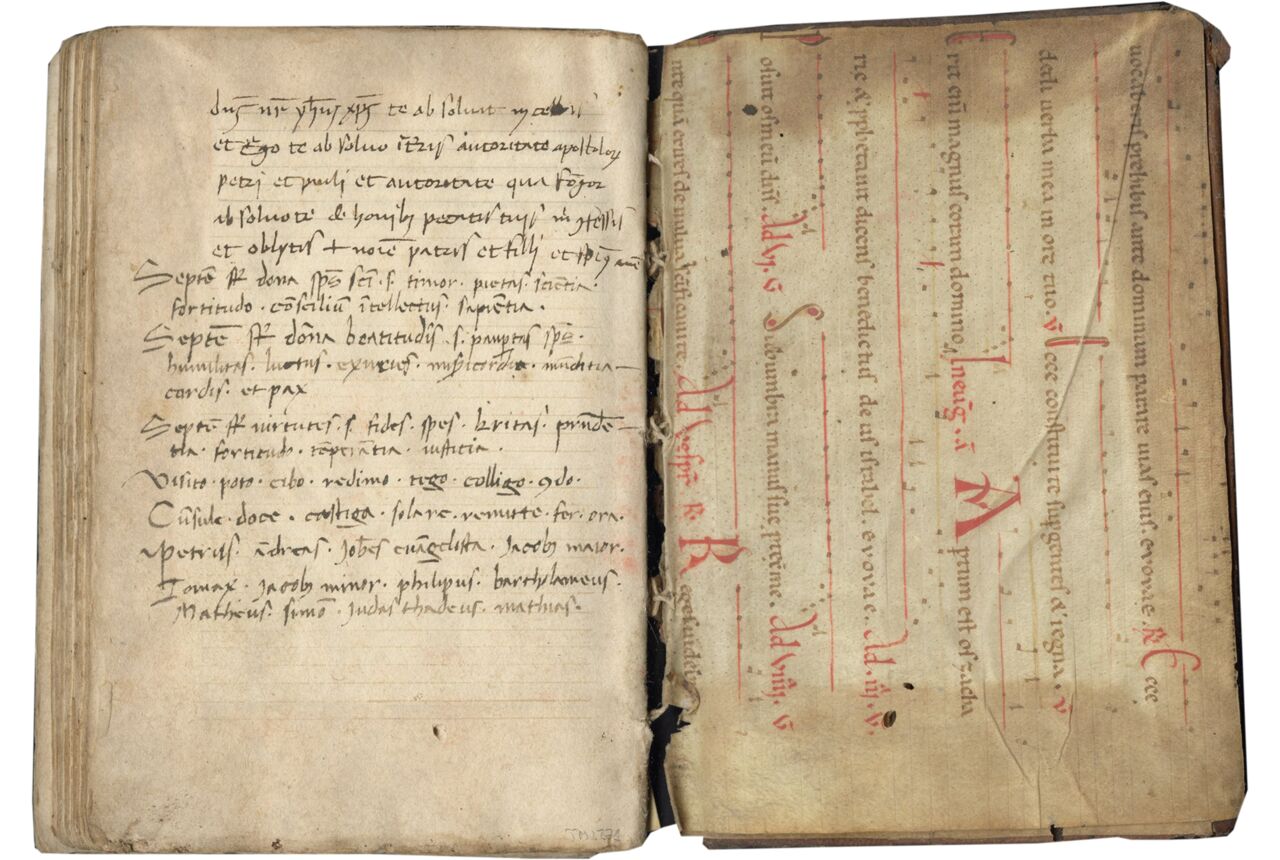 dns nr yhus xps te absoluit in celis
et Ego te absoluo itris autoritate apostolor
petri et pauli et autoritate qua
absoluo te de peccatis tuis
et oblytis + noie patris et filii et
Septe st dona sps sci . s . timor . pietas . scientia .
fortitudo . consciliu intellectus . sapientia .
Septe st dona beatitudis . s . paupertas sps .
humilitas . luctus . exuries . misericordia . munditia
cordis . et pax
Septe st uirtutes . s . fides . spes . karitas . prude
tia . fortitudo . teperantia . iusticia .
Visito . poto . cibo . redimo . tego . colligo . 9do .
Cunsule . doce . castiga . solare . remitte . fer . ora .
Petrus . andreas . Johes euangelista . Jacob maior .
Tomax . Jacob minor . philipus . bartholameus .
Matheus . simo . Judas thadeus . mathias .
uocaberis preibis ante dominum parare uias eius . evovae . R Ecce
dedi uerba mea in ore tuo . v Ecce constitui te sup gentes & regna . v
rit eni magnus coram domino . In eug . a Aptum est os zacha
rie & pphetauit dicens benedictus deus israhel . evovae . Ad . iii . v
osuit os meu dns . Ad vi . v Sub umbra manus sue ptexit me . Ad viiii . v
nte qua exires de uulua sanctificaui te . Ad uespr . R . Reges uidebt
TM 1771